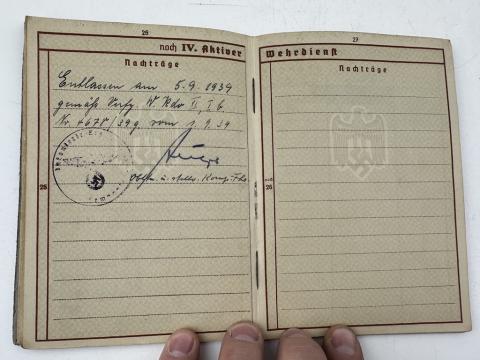 26
noch IV. Aktiver
Nachträge
Entlassen am 5.9.1939
gemäß Verfg. W Kdo II, Ib
Nr. 4670/39g vom 1.9.39
Obltn. u. stellv. Komp.
25
27
Wehrdienst
Nachträge
noch
26